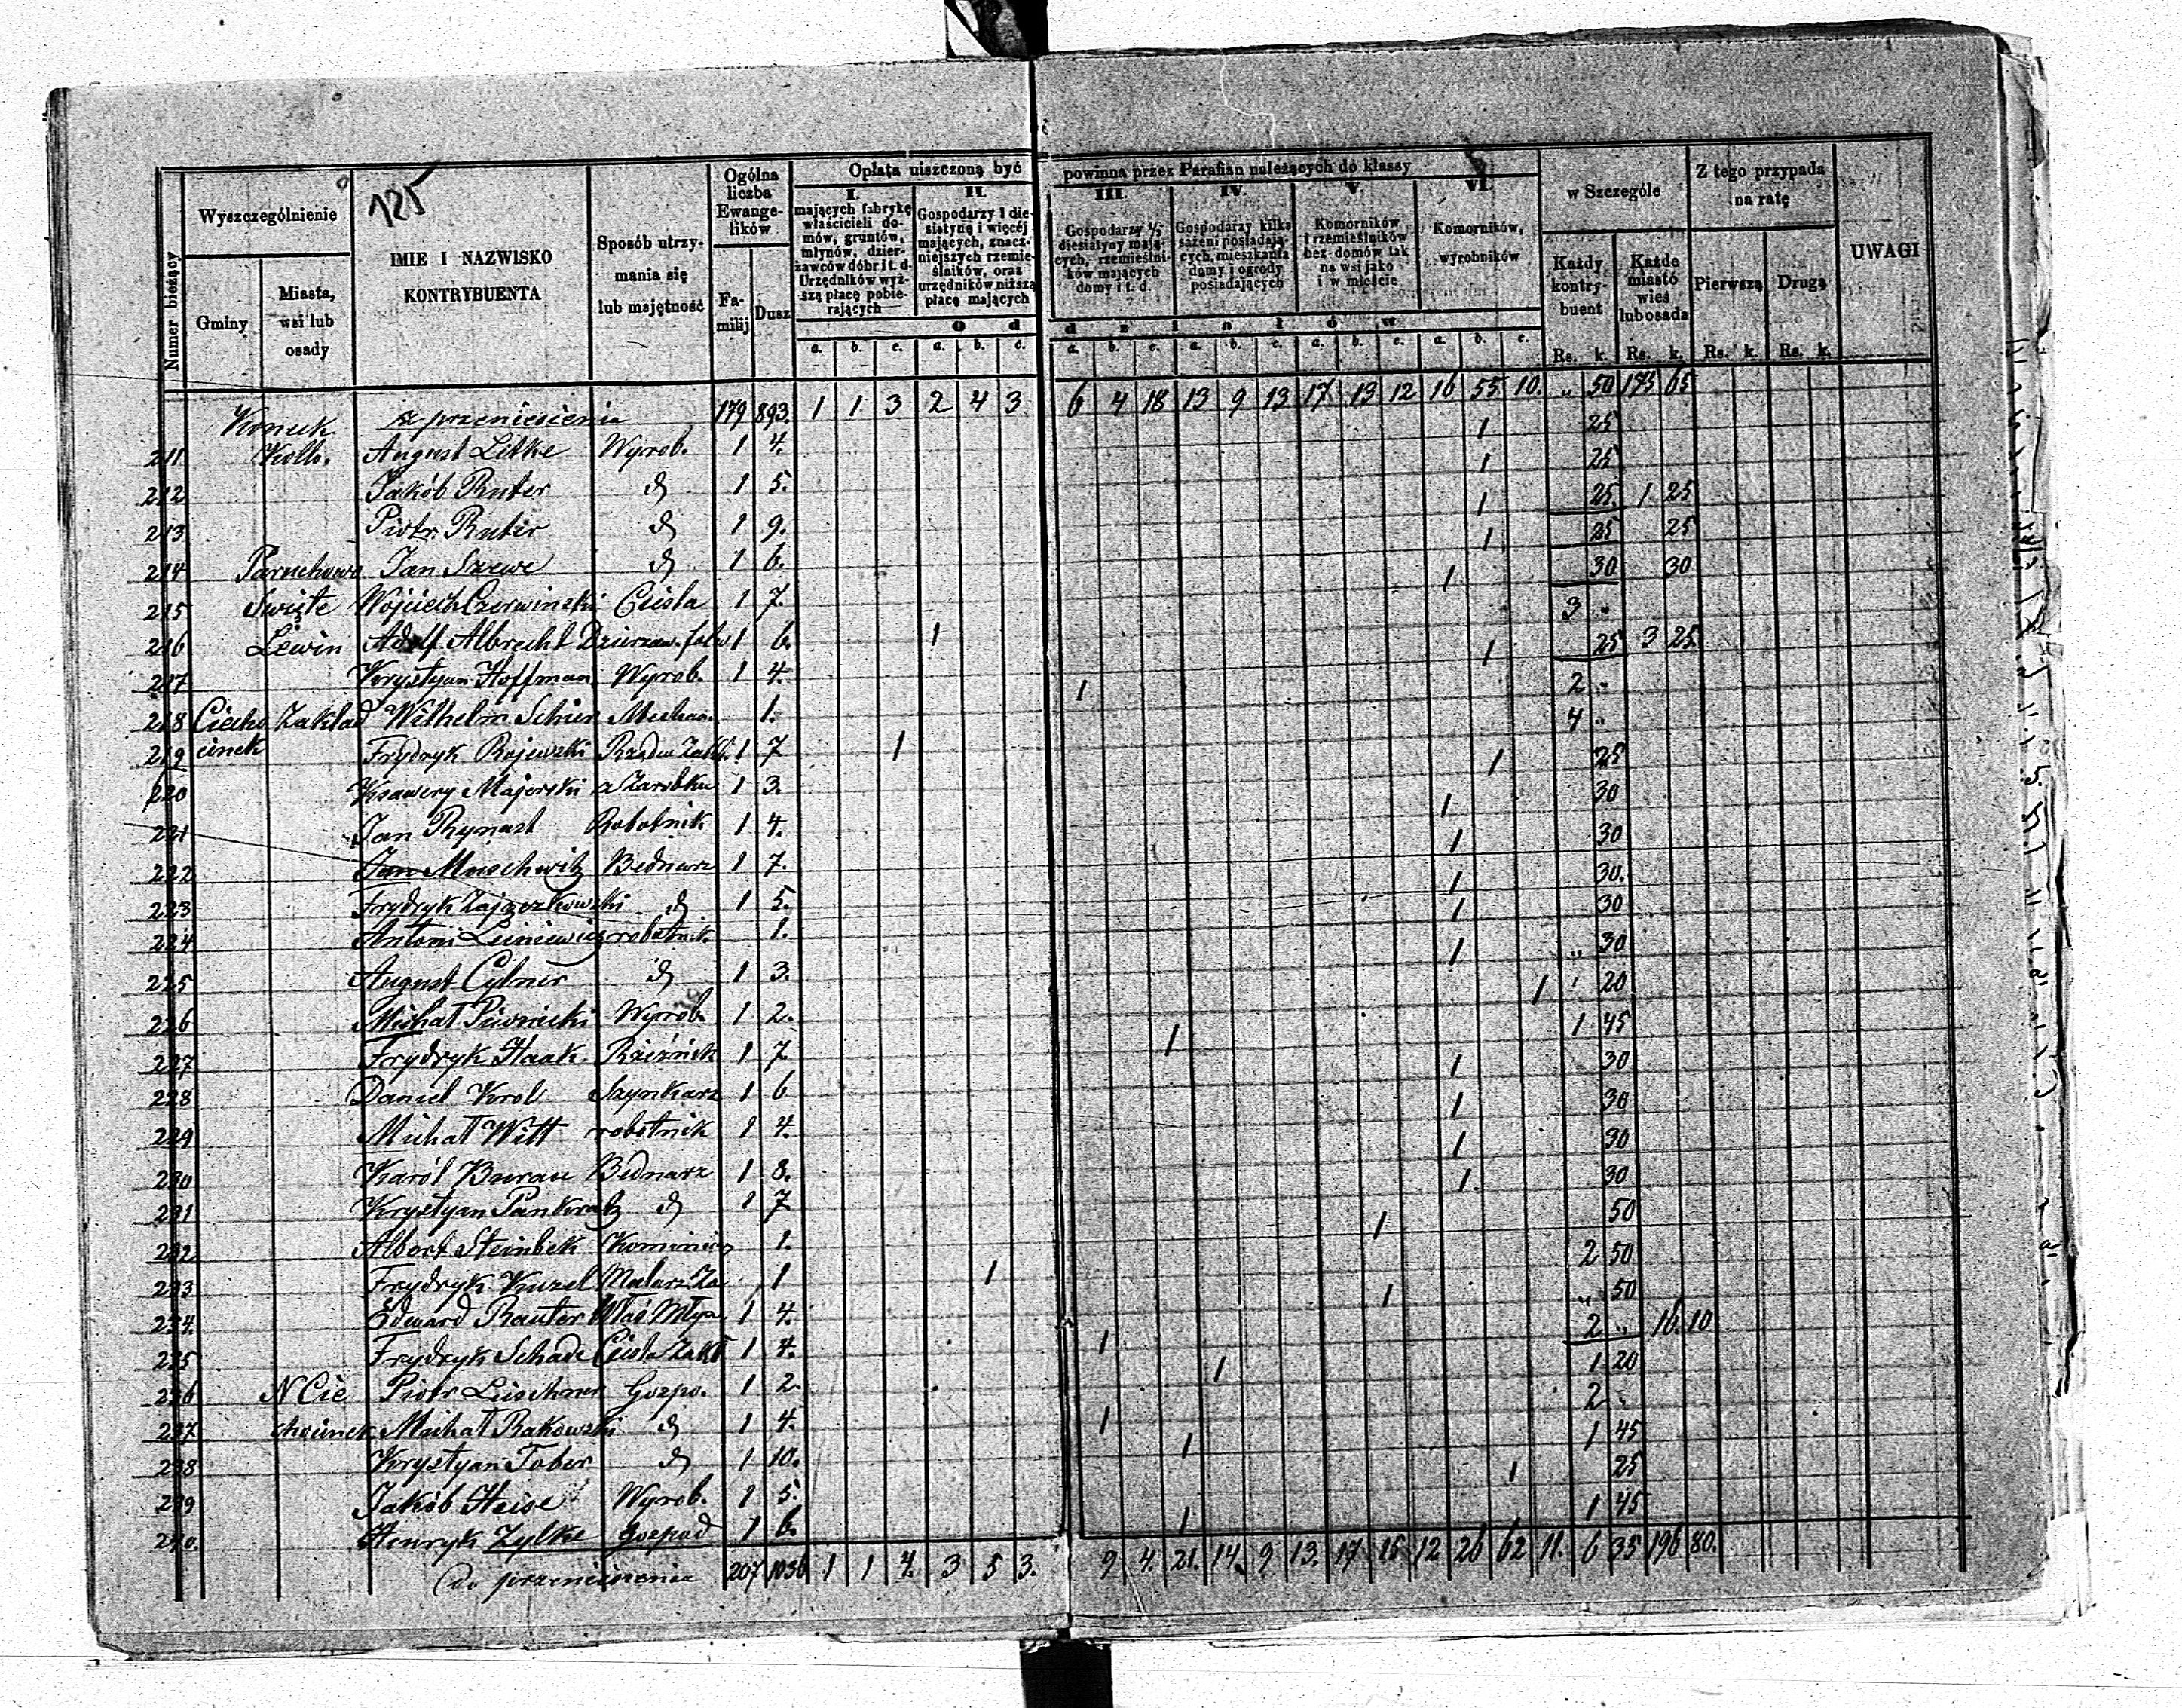 125
Numer bieżący
Wyszczególnienie
Gminy
Miasta, wsi lub osady
IMIE I NAZWISKO KONTRYBUENTA
Sposób utrzymania się lub majętność
Ogólna liczba Ewangelików
Familij
Dusz
Opłata uiszczoną być powinna przez Parafian należących do klassy
I. mających fabrykę właścicieli domów, gruntów, młynów, dzierżawców dóbr i t. d. Urzędników wyższą płacę pobierających
II. Gospodarzy 1 diesiatynę i więcej mających, znaczniejszych rzemieślników, oraz urzędników niższą płacę mających
III. Gospodarzy ½ diesiatyny mających, rzemieślników mających domy i t. d.
IV. Gospodarzy kilka sążeni posiadających, mieszkańta domy i ogrody posiadających
V. Komorników i rzemieślników bez domów tak na wsi jako i w mieście
VI. Komorników, wyrobników
O d d z i a ł ó w
a. b. c. a. b. c. a. b. c. a. b. c. a. b. c. a. b. c.
w Szczególe
Każdy kontrybuent
Rs. k.
Każde miasto wieś lub osada
Rs. k.
Z tego przypada na ratę
Pierwszą
Rs. k.
Drugą
Rs. k.
UWAGI
Koneck z przeniesienia 179 893. 1 1 3 2 4 3 6 4 18 13 9 13 17 13 12 16 55 10. „ 50 173 65
211 Koll. August Litke Wyrob. 1 4. 1 25
212 Jakób Ruter d 1 5. 1 25
213 Piotr Ruter d 1 9. 1 25. 1 25
214 Paruchowo Jan Szewe d 1 6. 1 25 25
215 Święte Wojciech Czerwinski Cieśla 1 7. 1 30 30
216 Lewin Adolf Albrecht Dzierzaw. folw 1 6. 1 3 „
217 Krystyan Hoffman Wyrob. 1 4. 1 25 3 25.
218 Ciecho Zakład Wilhelm Schier Mechan. 1. 1 2 „
219 cinek Frydryk Rojewski Rządca Zakł. 1 7 1 4 „
220 Ksawery Majerski z Zarobku 1 3. 1 25
221 Jan Rynast Robotnik 1 4. 1 30
222 Jan Muschwitz Bednarz 1 7. 1 30
223 Frydryk Zajączkowski d 1 5. 1 30.
224 Antoni Leiniewicz robotnik 1. 1 30
225 August Cylner d 1 3. 1 „ 30
226 Michał Piwnicki Wyrob. 1 2. 1 20
227 Frydryk Haak Rzeźnik 1 7 1 1 45
228 Daniel Krol Szynkarz 1 6 1 30
229 Michał Witt robotnik 1 4. 1 30
230 Karól Burau Bednarz 1 8. 1 30
231 Krystyan Pankratz d 1 7 1 30
232 Albert Steinbek Kominiarz 1. 1 50
233 Frydryk Kuzel Malarz Za 1 1 2 50
234. Edward Rauter Właś Młyn 1 4. 1 „ 50
235 Frydryk Schade Cieśla Zakł 1 4. 1 2 „ 16. 10
236 N Cie Piotr Lieschner Gospo. 1 2. 1 1 20
237 chocinek Michał Rakowski d 1 4. 1 2 „
238 Krystyan Tober d 1 10. 1 1 45
239 Jakób Heise Wyrob. 1 5. 1 25
240. Henryk Zylke gospod 1 6. 1 1 45
do przeniesienia 207 1036 1 1 4. 3 5 3. 9 4. 21. 14. 9 13. 17 15 12 26 62 11. 6 35 196 80.